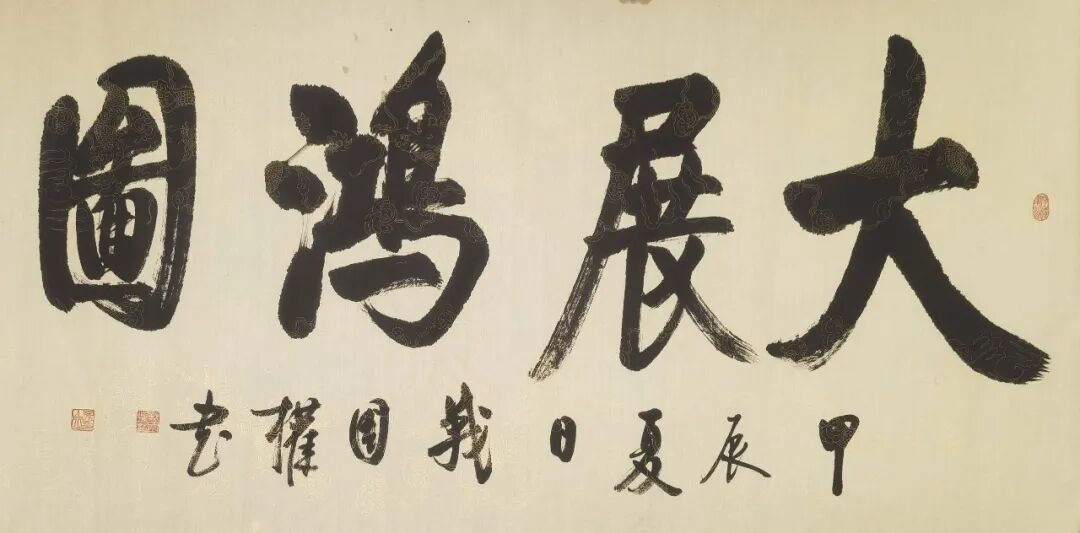 大展鴻圖
甲辰夏日戰國權书